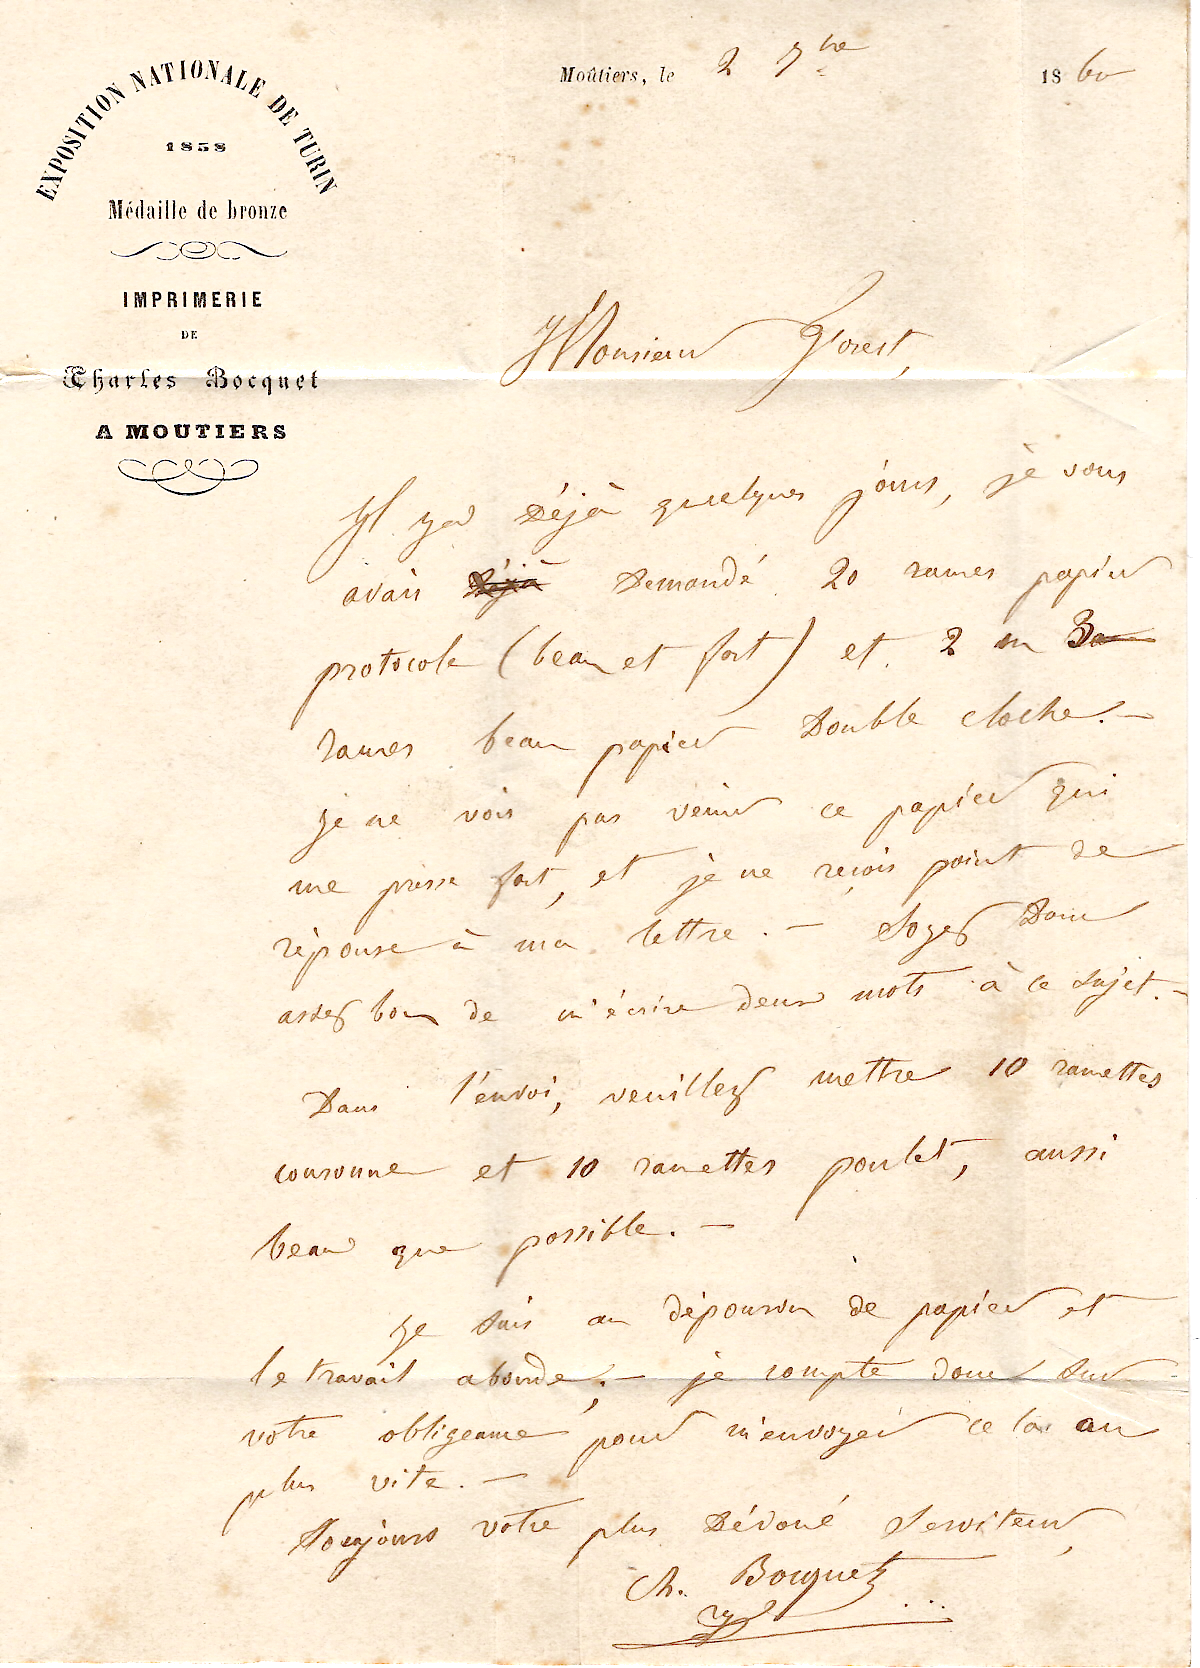 EXPOSITION NATIONALE DE TURIN
1858
Médaille de bronze
IMPRIMERIE
DE
Charles Bocquet
A MOUTIERS
Moûtiers, le 2 7bre 1860
Monsieur Forest,
Il y a déjà quelques jours, je vous
avais déjà demandé 20 rames papier
protocole (beau et fort) et 2 ou 3
rames beau papier Double cloche. —
Je ne vois pas venir ce papier qui
me presse fort, et je ne reçois point de
réponse à ma lettre. — Soyez donc
assez bon de m'écrire deux mots à ce sujet. —
Dans l'envoi, veuillez mettre 10 ramettes
couronne et 10 ramettes poulet, aussi
beau que possible. —
Je suis au dépourvu de papier et
le travail abonde; — je compte donc sur
votre obligeance pour m'envoyer cela au
plus vite. —
Toujours votre plus dévoué serviteur,
Ch. Bocquet